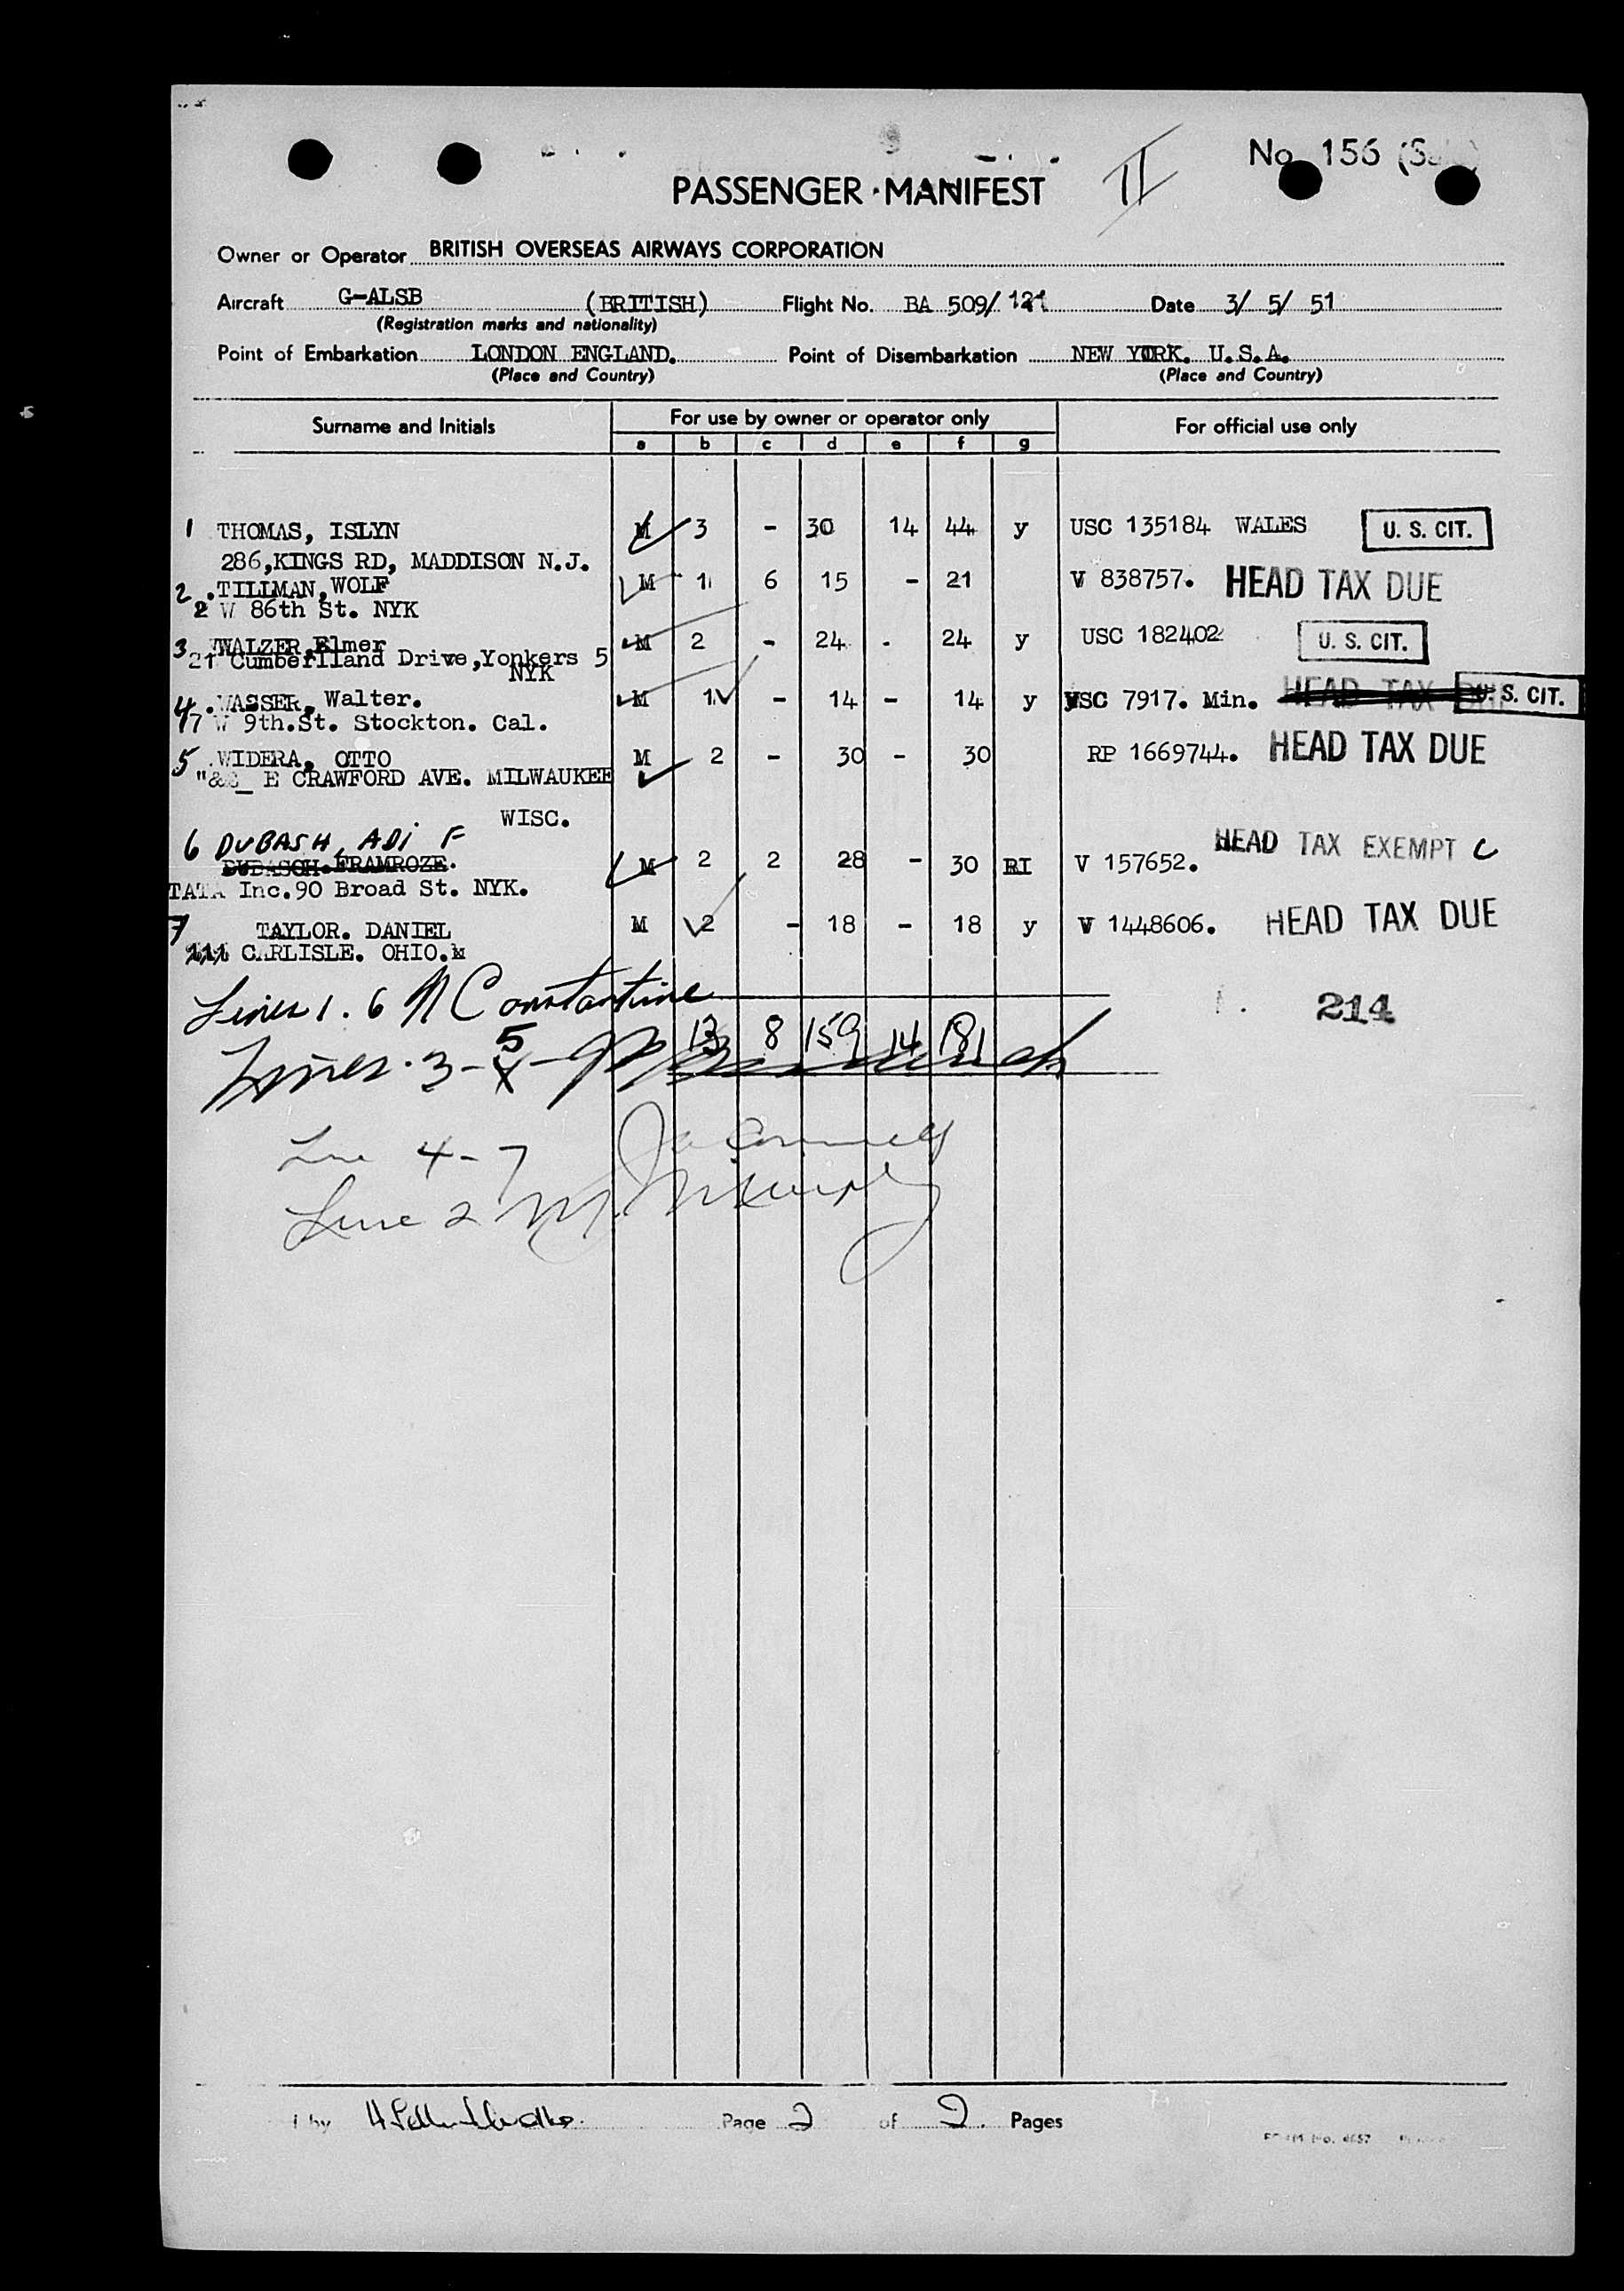 No. 156
PASSENGER MANIFEST II
Owner or Operator BRITISH OVERSEAS AIRWAYS CORPORATION
Aircraft G-ALSB (BRITISH) Flight No. BA 509/ 121 Date 3/ 5/ 51
(Registration marks and nationality)
Point of Embarkation LONDON ENGLAND. Point of Disembarkation NEW YORK. U.S.A.
(Place and Country) (Place and Country)
Surname and Initials For use by owner or operator only For official use only
a b c d e f g
1 THOMAS, ISLYN M 3 - 30 14 44 y USC 135184 WALES U. S. CIT.
286,KINGS RD, MADDISON N.J.
2 .TILLMAN,WOLF M 1 6 15 - 21 V 838757. HEAD TAX DUE
2 W 86th St. NYK
3 WALZER,Elmer M 2 - 24 - 24 y USC 182402 U. S. CIT.
21 Cumberlland Drive,Yonkers 5
NYK
4 .WASSER, Walter. M 1 - 14 - 14 y USC 7917. Min. HEAD TAX DUE U. S. CIT.
47 W 9th.St. Stockton. Cal.
5 .WIDERA, OTTO M 2 - 30 - 30 RP 1669744. HEAD TAX DUE
E CRAWFORD AVE. MILWAUKEE
WISC.
6 DUBASH, ADI F HEAD TAX EXEMPT C
DUBASCH.FRAMROZE. M 2 2 28 - 30 RI V 157652.
TATA Inc.90 Broad St. NYK.
7 TAYLOR. DANIEL M 2 - 18 - 18 y V 1448606. HEAD TAX DUE
111 CARLISLE. OHIO.
Lines 1. 6 N Constantine 214
13 8 159 14 181
Lines. 3-5-
Line 4-7
Line 2 M. Murphy
by Page 2 of 2. Pages